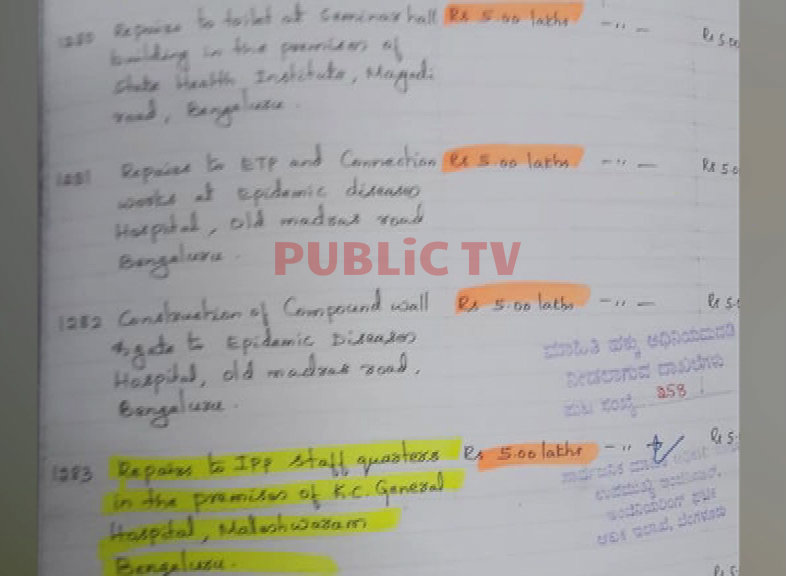 1280 Repaires to toilet at Seminar hall Rs 5.00 lakhs —〃— Rs 5.00
building in the premises of
State Health Institute, Magadi
road, Bengaluru.
1281 Repaires to ETP and Connection Rs 5.00 lakhs —〃— Rs 5.0
works at Epidemic diseases
Hospital, old madras road
Bengaluru.
PUBLiC TV
1282 Construction of Compound wall Rs 5.00 lakhs —〃— Rs 5.0
& gate to Epidemic Diseases
Hospital, old madras road,
Bengaluru.
ಮಾಹಿತಿ ಹಕ್ಕು ಅಧಿನಿಯಮದಡಿ
ನೀಡಲಾಗುವ ದಾಖಲೆಗಳು
ಪುಟ ಸಂಖ್ಯೆ... 258
1283 Repaires to IPP staff quarters Rs 5.00 lakhs —〃 Rs 5.
in the premises of K.C. General
Hospital, Maleshwaram
Bengaluru.
ಸಾರ್ವಜನಿಕ ಮಾಹಿತಿ
ಇಂಜಿನಿಯರಿಂಗ್
ಬೆಂಗಳೂರು
Rs 5.